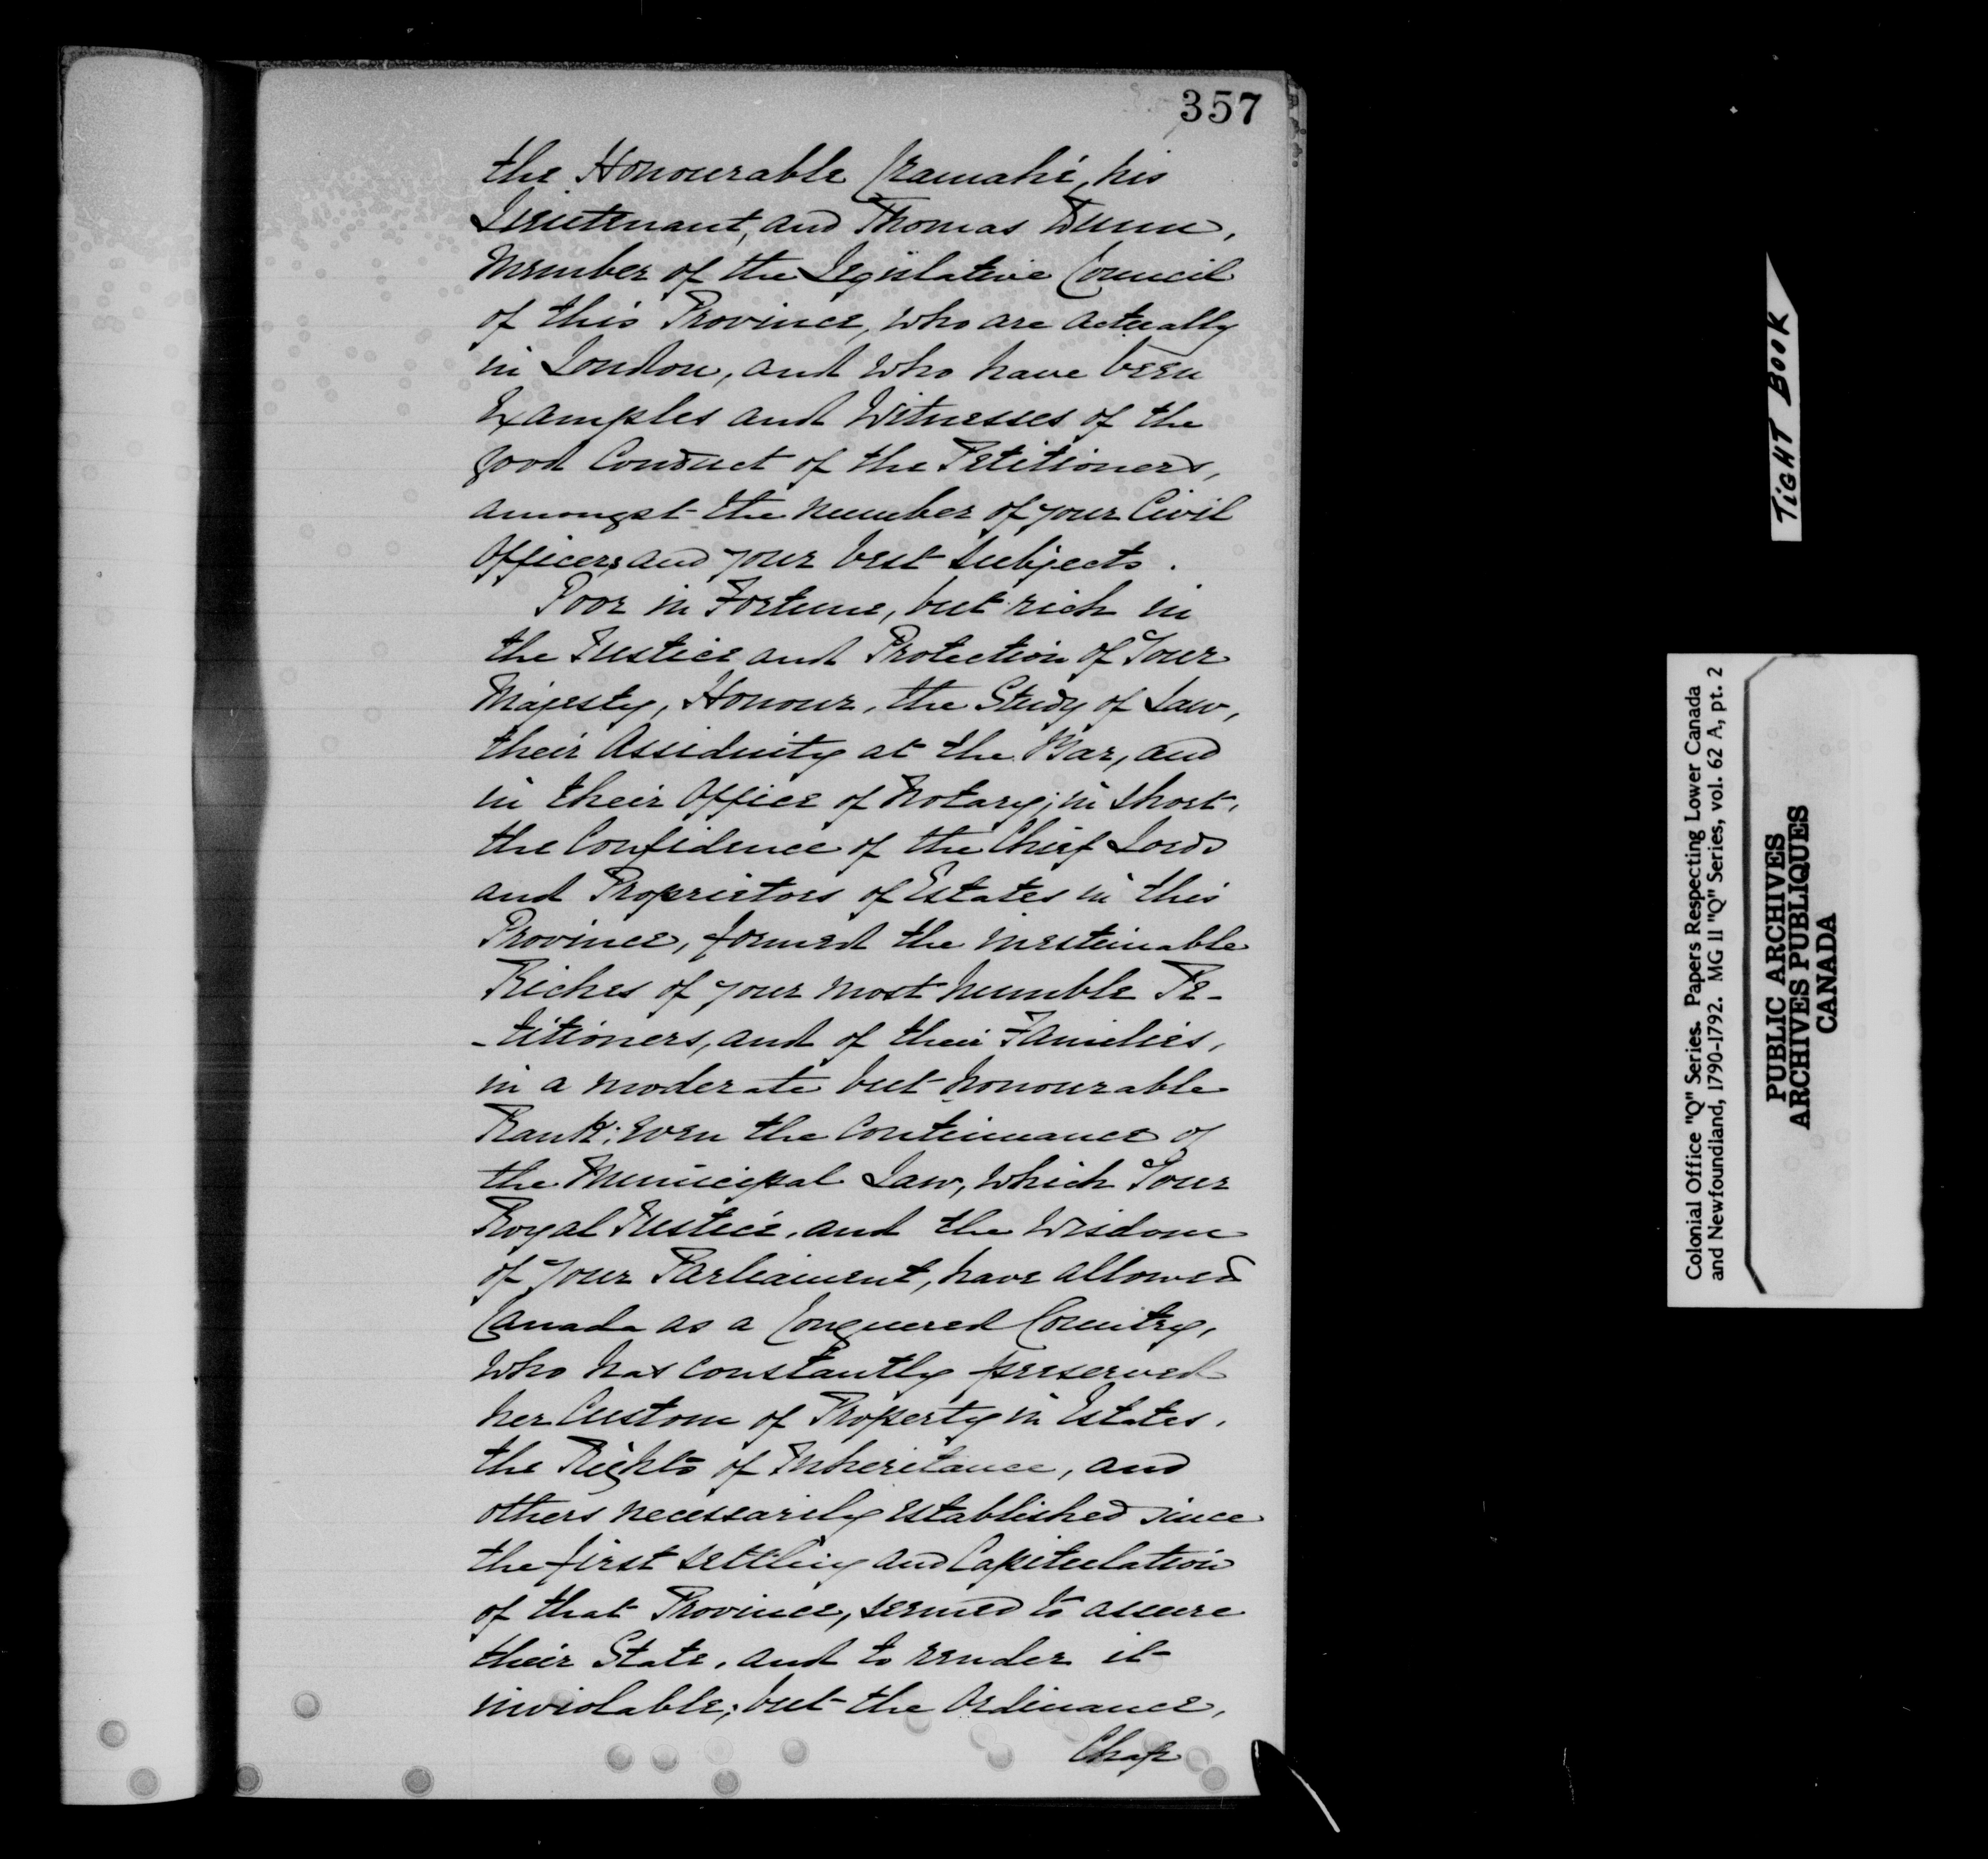 357
the Honourable Cramahé, his
Lieutenant, and Thomas Dunn,
Member of the Legislative Council
of this Province, who are actually
in London, and who have been
Examples and Witnesses of the
good Conduct of the Petitioners,
amongst the number of your Civil
Officers and your best Subjects.
Poor in Fortune, but rich in
the Justice and Protection of Your
Majesty, Honour, the Study of Law,
their Assiduity at the Bar, and
in their Office of Notary; in short,
the Confidence of the Chief Lords
and Proprietors of Estates in this
Province, formed the inestimable
Riches of your most humble Pe-
-titioners, and of their Families,
in a moderate but honourable
Rank; even the Continuance of
the Municipal Law, which Your
Royal Justice, and the Wisdom
of Your Parliament, have allowed
Canada as a Conquered Country,
who has constantly preserved
her Custom of Property in Estates,
the Rights of Inheritance, and
others necessarily established since
the first settling and Capitulation
of that Province, seemed to assure
their State, and to render it
inviolable; but the Ordinance,
Chap
TIGHT BOOK
Colonial Office "Q" Series. Papers Respecting Lower Canada
and Newfoundland, 1790-1792. MG 11 "Q" Series, vol. 62 A, pt. 2
PUBLIC ARCHIVES
ARCHIVES PUBLIQUES
CANADA